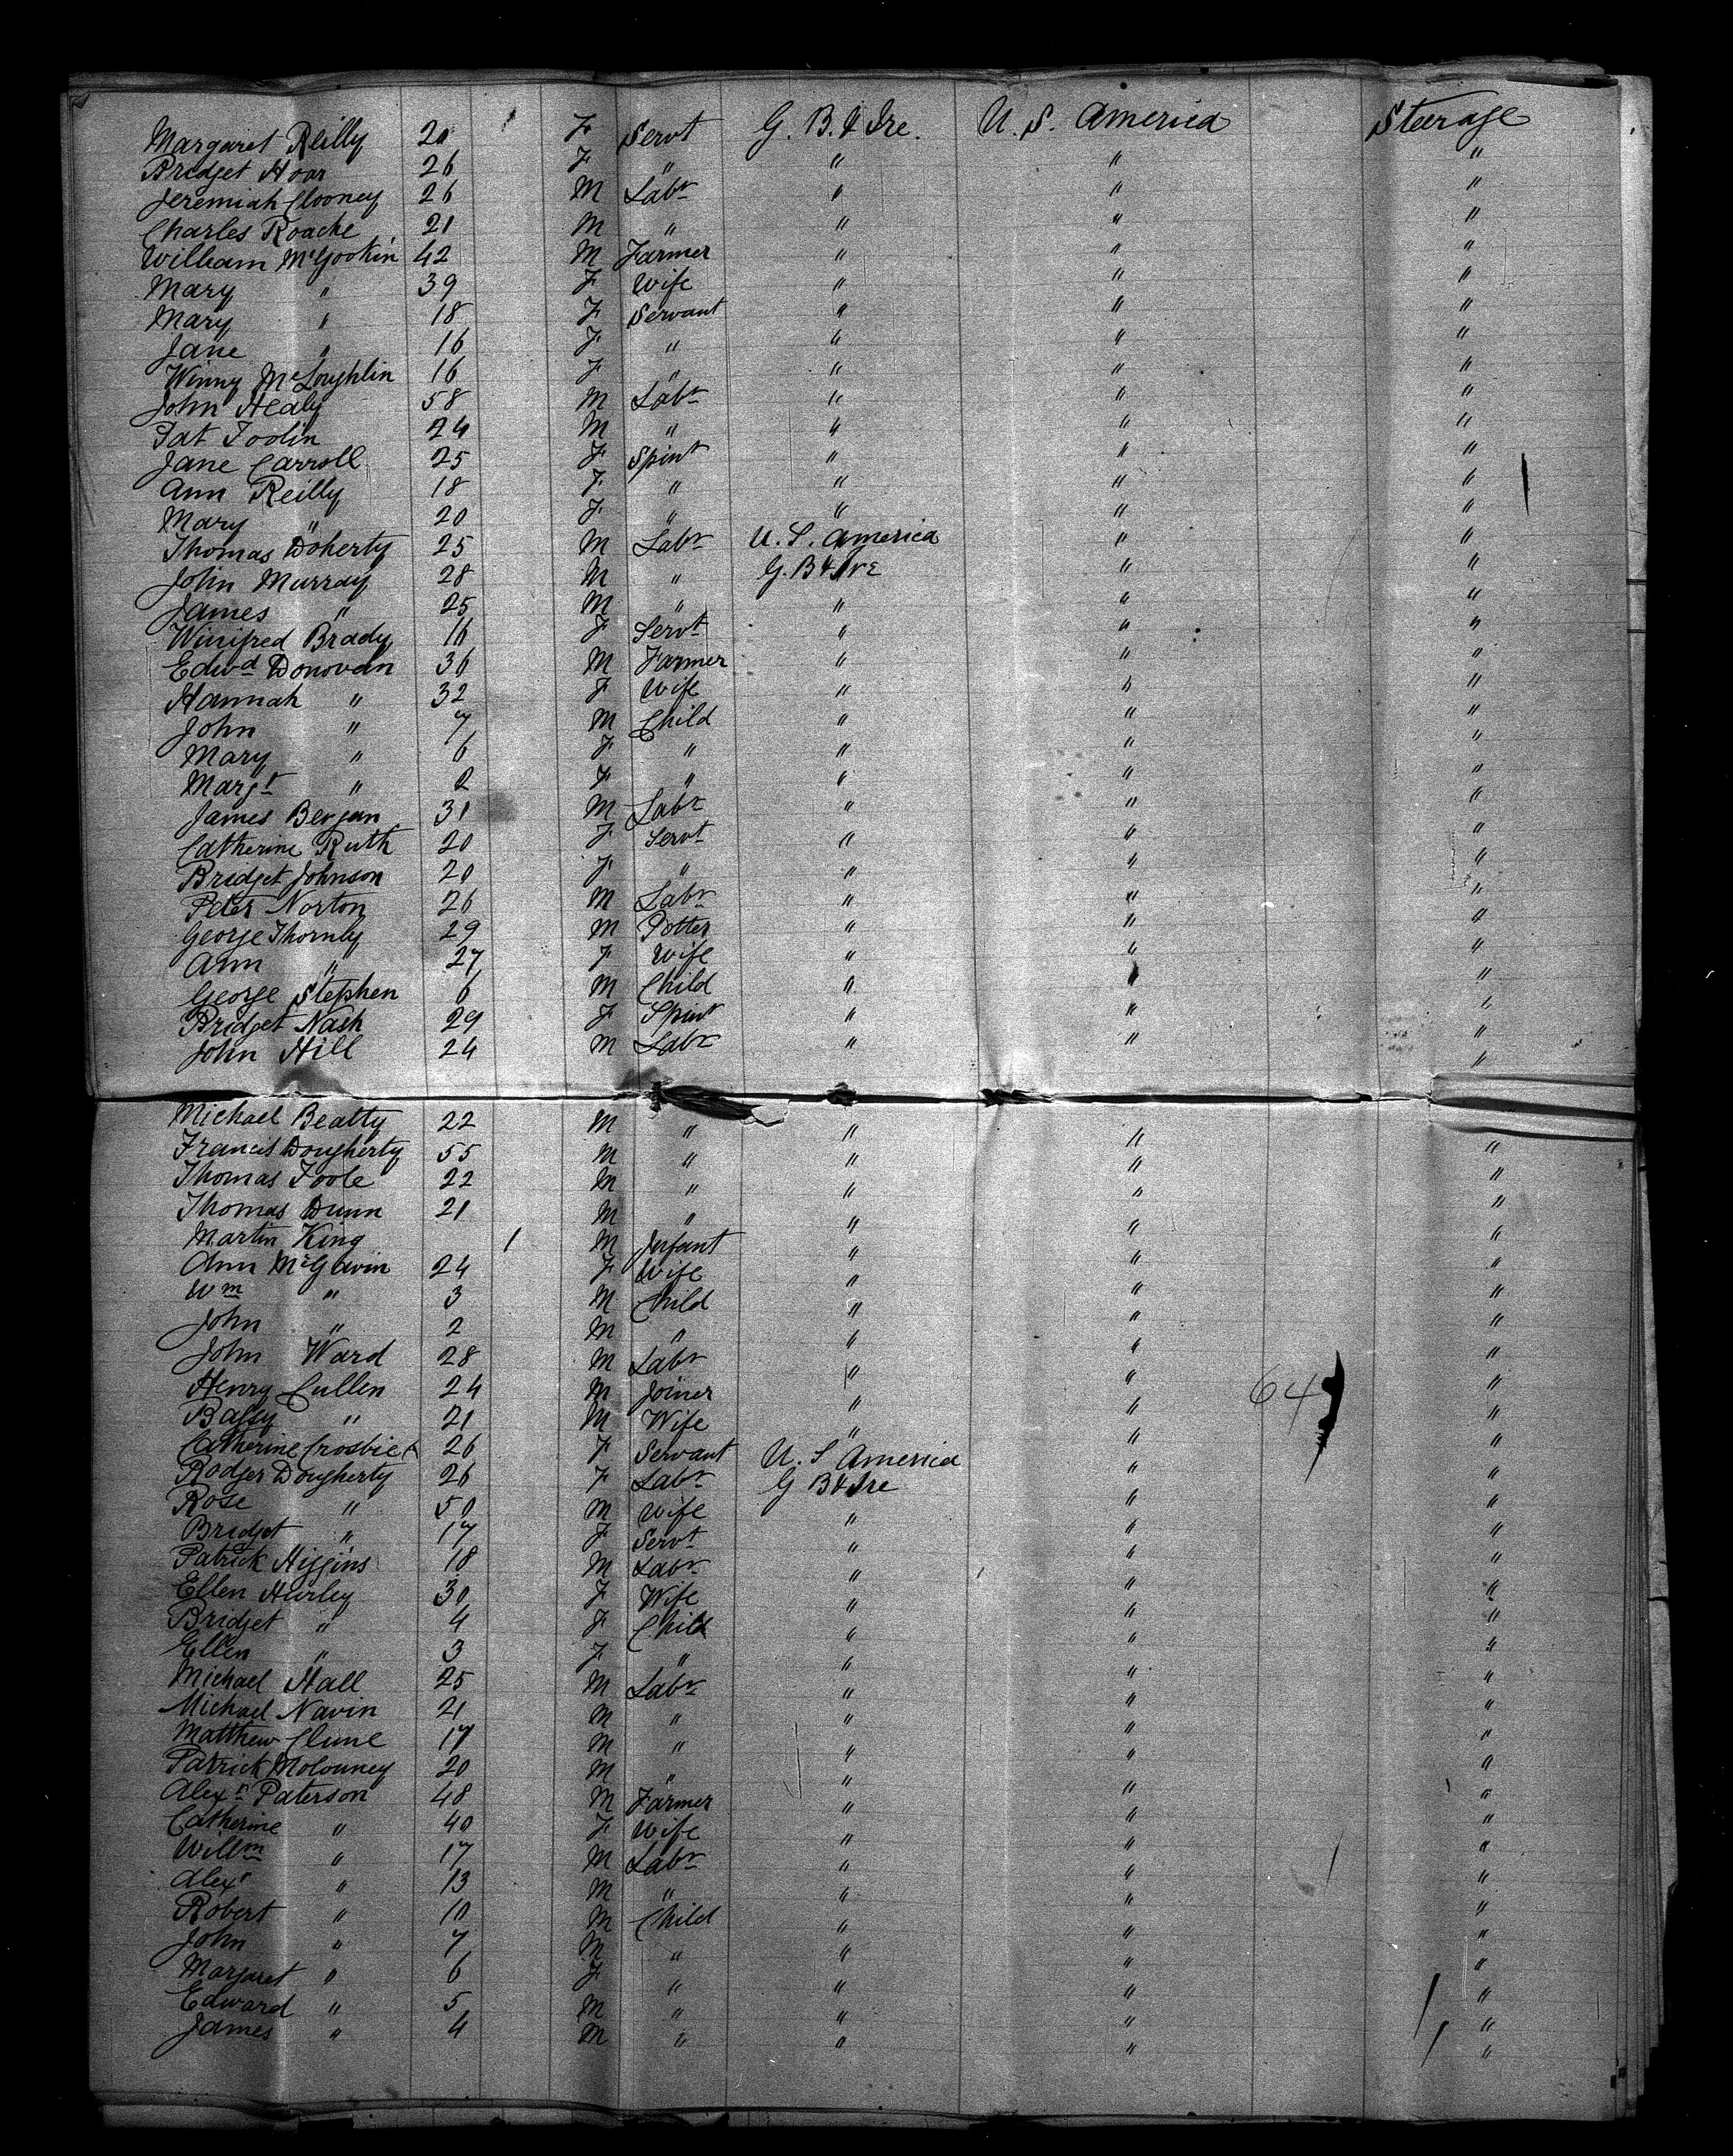 Margaret Reilly 20 F Servt G. B. & Ire. U. S. America Steerage
Bridget Hoar 26 F " " " "
Jeremiah Clooney 26 M Labr " " "
Charles Roache 21 M " " " "
William McGookin 42 M Farmer " " "
Mary " 39 F Wife " " "
Mary " 18 F Servant " " "
Jane " 16 F " " " "
Winny McLoughlin 16 F " " " "
John Healy 58 M Labr " " "
Pat Toolin 24 M " " " "
Jane Carroll 25 F Spinr " " "
Ann Reilly 18 F " " " "
Mary " 20 F " " " "
Thomas Doherty 25 M Labr U. S. America " "
John Murray 28 M " G. B & Ire " "
James " 25 M " " " "
Winifred Brady 16 F Servt " " "
Edwd Donovan 36 M Farmer " " "
Hannah " 32 F Wife " " "
John " 7 M Child " " "
Mary " 6 F " " " "
Margt " 2 F " " " "
James Bergan 31 M Labr " " "
Catherine Ruth 20 F Servt " " "
Bridget Johnson 20 F " " " "
Peter Norton 26 M Labr " " "
George Thornly 29 M Potter " " "
Ann " 27 F Wife " " "
George Stephen 6 M Child " " "
Bridget Nash 29 F Spinr " " "
John Hill 24 M Labr " " "
Michael Beatty 22 M " " " "
Francis Dougherty 55 M " " " "
Thomas Toole 22 M " " " "
Thomas Dunn 21 M " " " "
Martin King 1 M Infant " " "
Ann McGavin 24 F Wife " " "
Wm " 3 M Child " " "
John " 2 M " " " "
John Ward 28 M Labr " " "
Henry Cullen 24 M Joiner " 64 "
" 21 M Wife " " "
Catherine Crosbie 26 F Servant U. S America " "
Rodger Dougherty 26 F Labr G B & Ire " "
Rose " 50 M Wife " " "
Bridget " 17 F Servt " " "
Patrick Higgins 18 M Labr " " "
Ellen Hurley 30 F Wife " " "
Bridget " 4 F Child " " "
Ellen " 3 F " " " "
Michael Hall 25 M Labr " " "
Michael Navin 21 M " " " "
Matthew Clune 17 M " " " "
Patrick Molouney 20 M " " " "
Alexr Paterson 48 M Farmer " " "
Catherine " 40 F Wife " " "
Willm " 17 M Labr " " "
Alexr " 13 M " " " "
Robert " 10 M Child " " "
John " 7 M " " " "
Margaret " 6 F " " " "
Edward " 5 M " " " "
James " 4 M " " " "